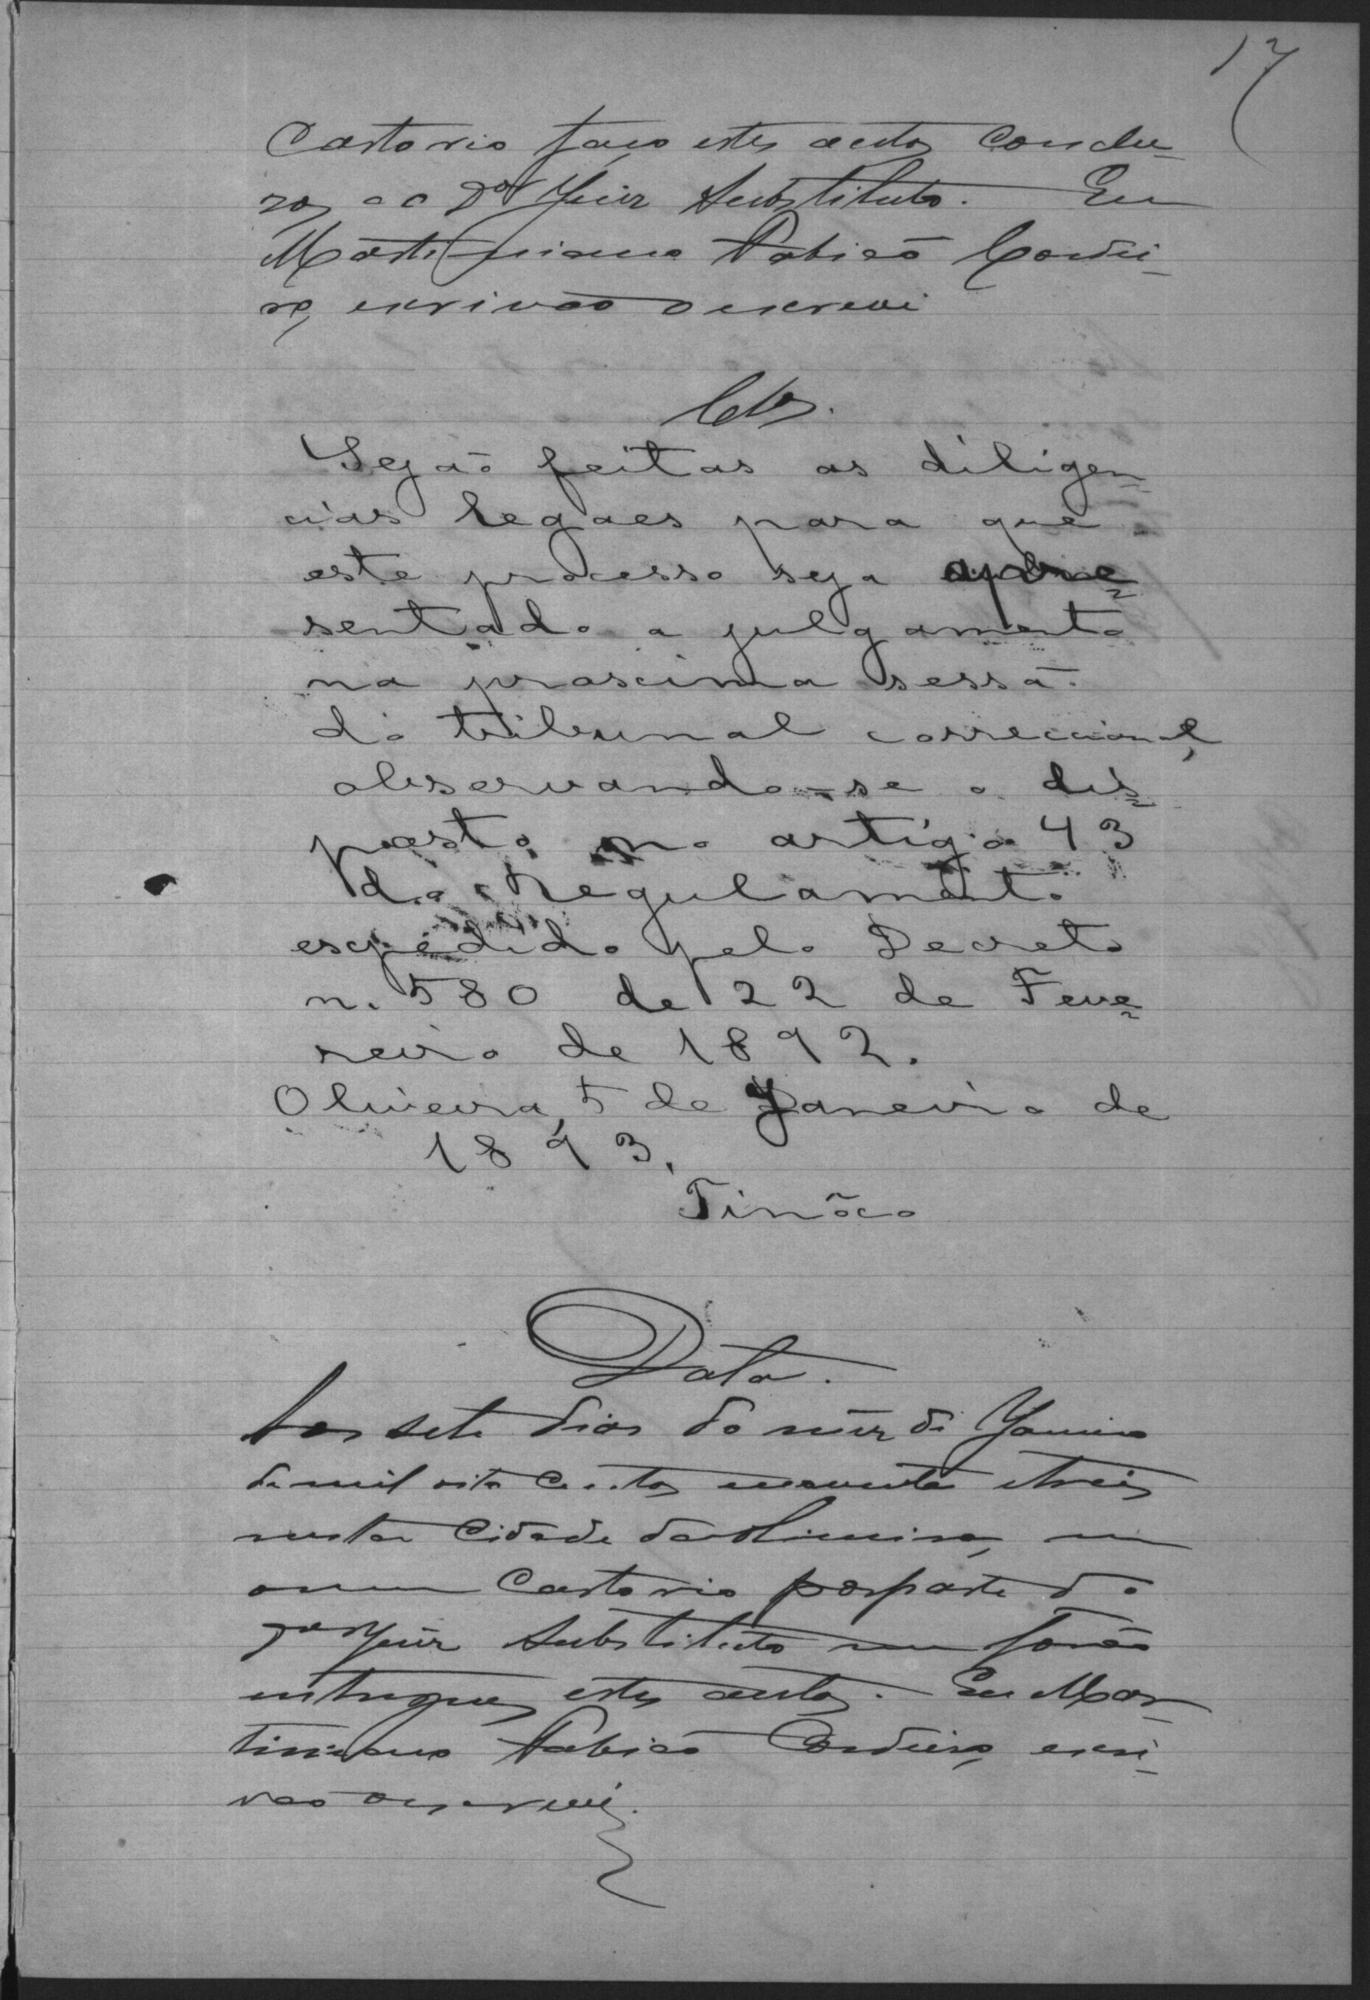 17
Cartorio faço estes autos conclu-
zos ao Dor Juiz Substituto. Eu
Martiniano Fabião Cordei-
ro, escrivão o escrevi
Clos.
Sejão feitas as diligen-
cias legaes para que
este processo seja apre-
sentado a julgamento
na proxima sessão
do tribunal correccional,
observando-se o dis-
posto no artigo 43
do Regulamento
expedido pelo Decreto
n. 580 de 22 de Feve-
reiro de 1892.
Oliveira, 5 de Janeiro de
1893.
Tinôco
Data.
Aos sete dias do mez de Janeiro
de mil oito centos noventa e treis
nesta Cidade da Oliveira, em
o meu Cartorio por parte do
Dor Juiz Substituto me forão
entregues estes autos. Eu Mar-
tiniano Fabião Cordeiro, escri-
vão o escrevi.